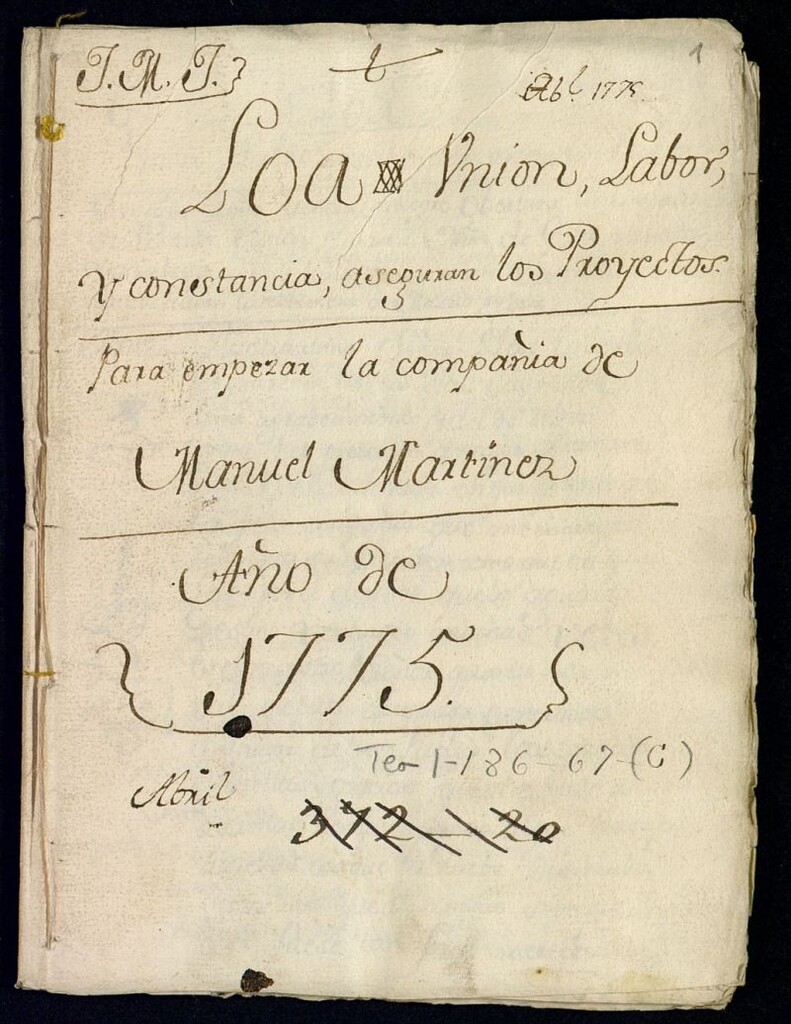 J. M. J.
Abl. 1775
1
Loa Vnion, Labor,
Y constancia, aseguran los Proyectos.
Para empezar la compañia de
Manuel Martinez
Año de
1775.
Tea 1-186-67-(C)
Abril
372-20